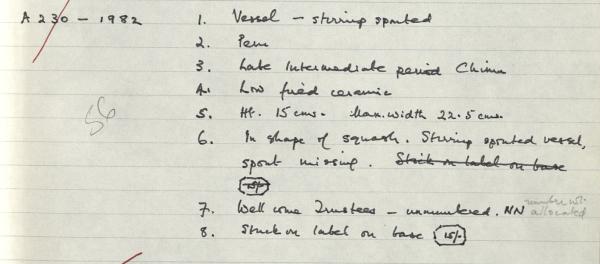 A 230 - 1982 1. Vessel - stirring spouted
2. Peru
3. Late Intermediate period Chimu
4. Low fired ceramic
5. Ht. 15 cms. Max. width 22.5 cms.
56
6. In shape of squash. Stirring spouted vessel,
spout missing. Stick on label on base
15/-
7. Wellcome Trustees - unnumbered. NN number not
allocated
8. Stuck on label on base 15/-